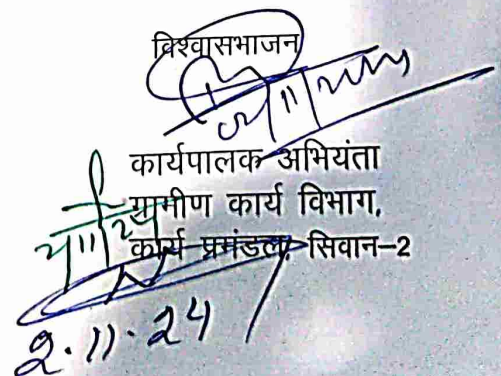 विश्वासभाजन
कार्यपालक अभियंता
ग्रामीण कार्य विभाग,
कार्य प्रमंडल, सिवान-2
2.11.24